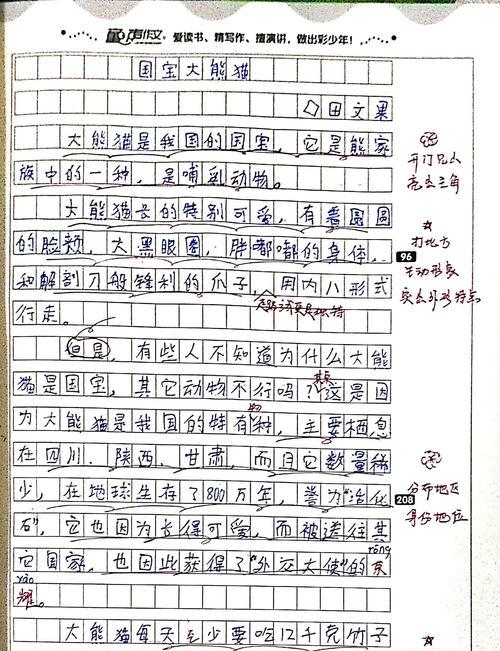 有作文 爱读书、精写作、擅演讲，做出彩少年！
国宝大熊猫
田文果
大熊猫是我国的国宝，它是熊家
族中的一种，是哺乳动物。
大熊猫长的特别可爱，有着圆圆
的脸颊，大黑眼圈，胖嘟嘟的身体，
和解剖刀般锋利的爪子，用内八形式
行走。
但是，有些人不知道为什么大熊
猫是国宝，其它动物不行吗？这是因
为大熊猫是我国的特有种，主要栖息
在四川、陕西、甘肃，而且它数量稀
少，在地球生存了800万年，誉为“活化
石”，它也因为长得可爱，而被送往其
它国家，也因此获得了“外交大使”的荣
róng
耀。
yào
大熊猫每天至少要吃12千克竹子
开门见山
亮出主角
打比方
96
生动形象
突出外形特点
其实
物
208
分布地区
身份地位